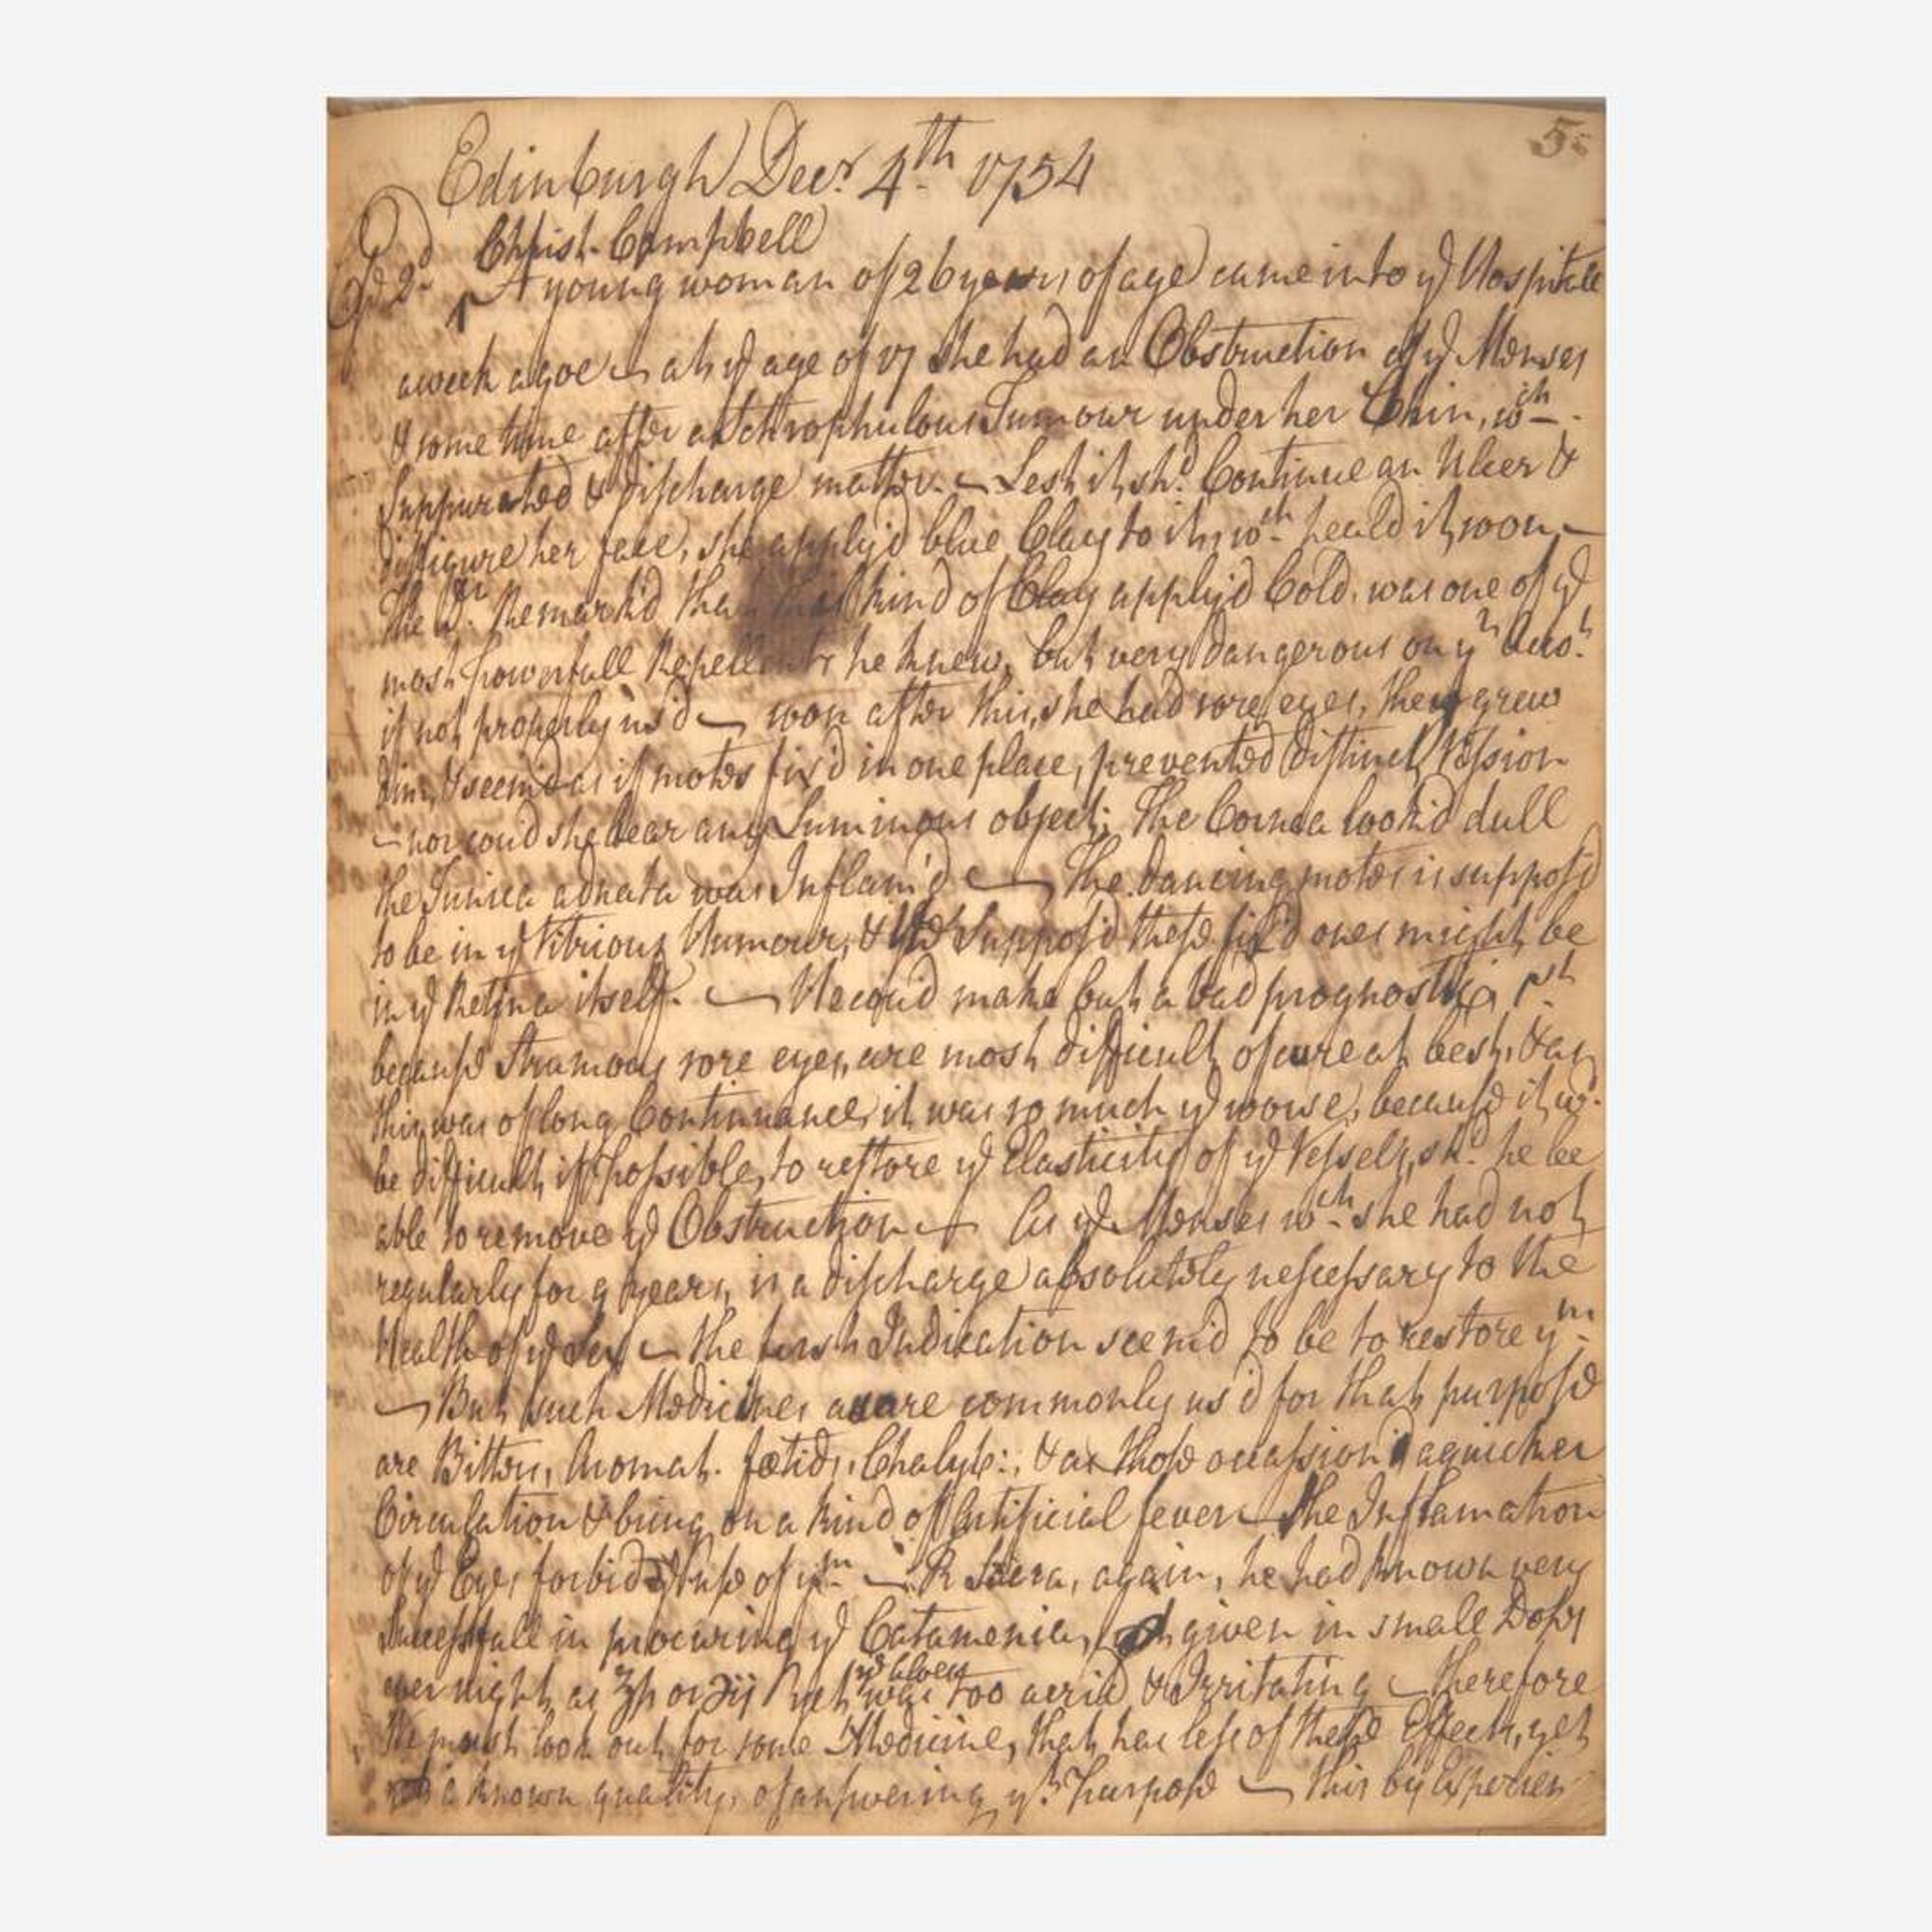 5
Edinburgh Decr. 4th 1754
Christ. Campbell
2d. A young woman of 26 years of age came into ye Hospitall
a week agoe – at ye age of 17 she had an Obstruction of ye Menses
& some time after a Schrophulous Tumour under her Chin, wch.
suppurated & discharge matter. – Lest it shd. Continue an Ulcer &
disfigure her face, she apply'd blue Clay to it, wch. heal'd it soon –
The Dr. Remark'd that this kind of Clay apply'd Cold, was one of ye
most powerfull Repellents he knew, but very dangerous on yt Acct.
if not properly us'd – soon after this, she had sore eyes, they grew
dim, & seem'd as if motes fix'd in one place, prevented distinct Vission
– nor cou'd she bear any Luminous object; The Cornea look'd dull
the Tunica adnata was Inflam'd – The dancing motes is suppos'd
to be in ye Vitrious Humour, & He Suppos'd these fix'd ones might be
in ye Retina itself. – He cou'd make but a bad prognostic, 1st.
because Strumous sore eyes, are most difficult of cure at best, & as
this was of long Continuance, it was so much ye worse, because it wd.
be difficult, if possible, to restore ye Elasticity of ye Vessels, shd. he be
able to remove ye Obstruction – As ye Menses wch. she had not
regularly for 9 years, is a discharge absolutely nescessary to the
Health of ye Sex – the first Indication seem'd to be to restore ym.
– But such Medicines as are commonly us'd for that purpose
are Bitters, Aromat. foetids, Chalyb:, & as those occassion'd a quicker
Circulation & bring on a kind of Artificial fever – The Inflamation
of ye Eyes forbid ye use of ym. – R Sacra, again, he had known very
successfull in procuring ye Catamenia, given in small Doses
over night, as or but ye Aloes was too acrid & Irritating – therefore
He must look out for some Medicine, that has less of these Effects, yet
a known quality, of answering ys. Purpose – this by Experien